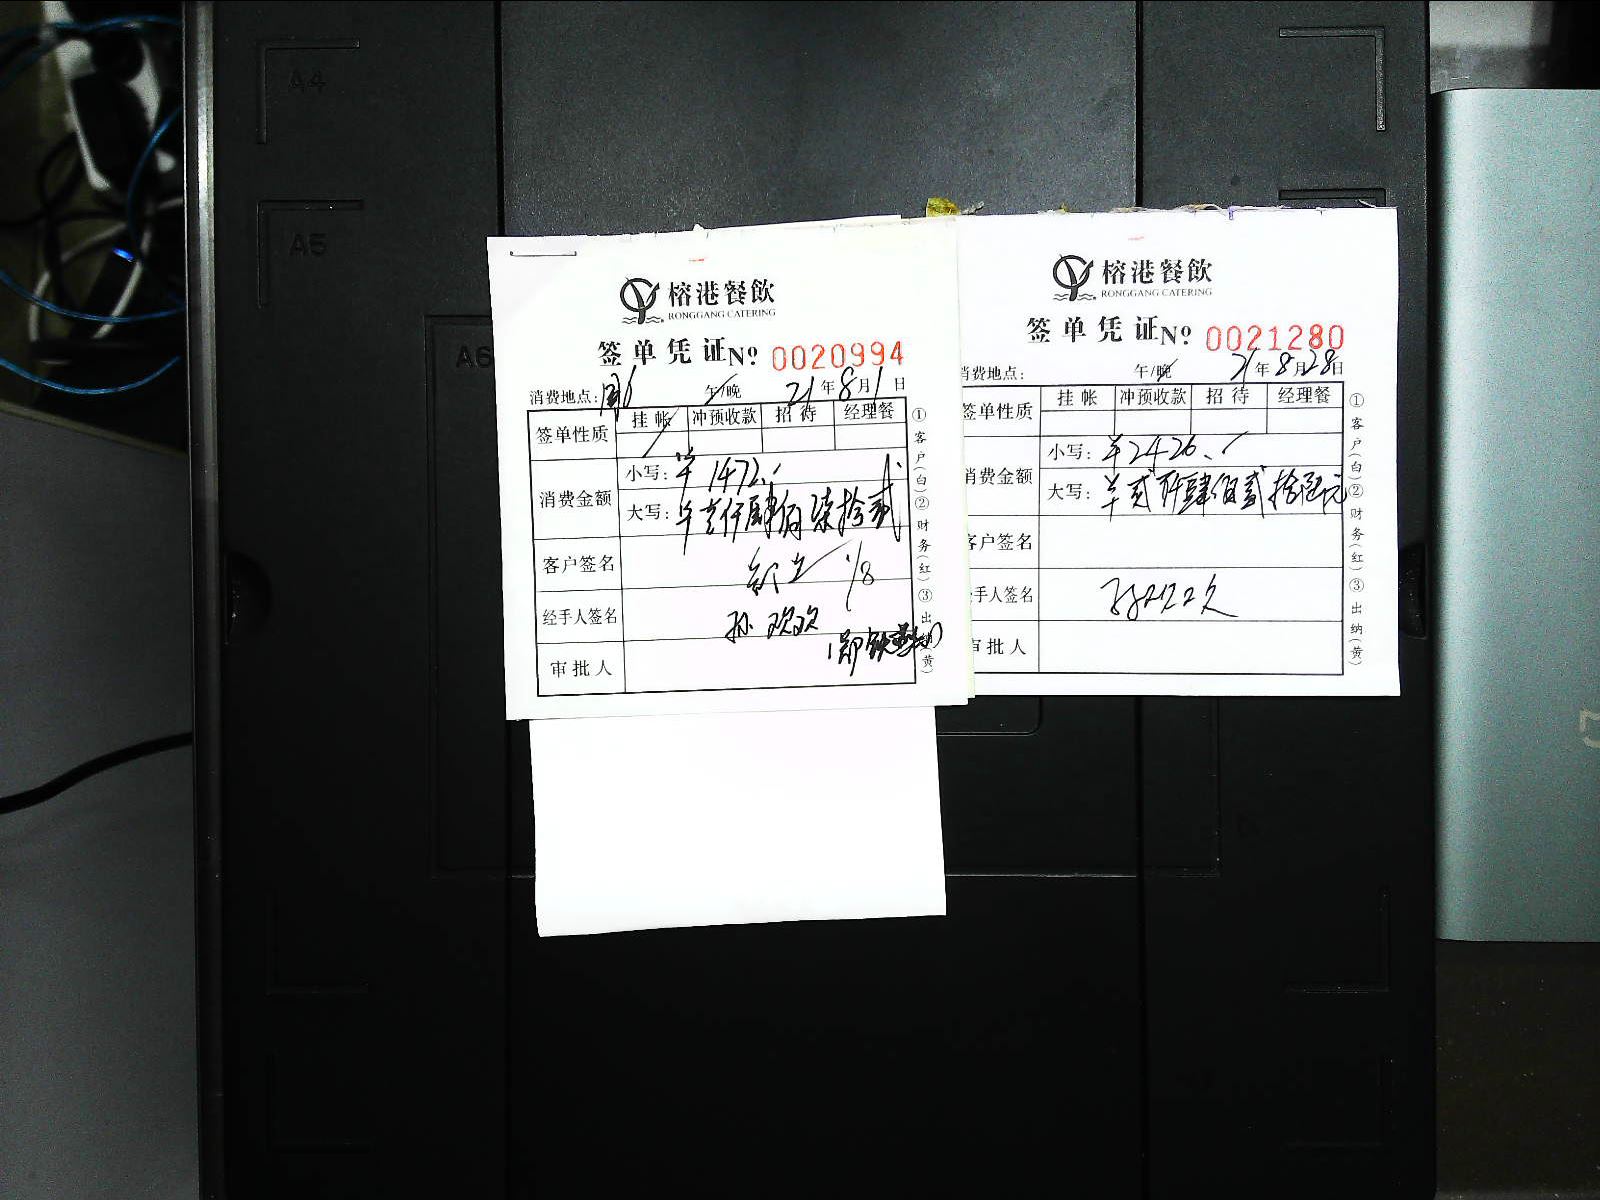 A4
A5
A6
榕港餐飲
RONGGANG CATERING
签单凭证 № 0020994
消费地点: 午/晚 21年8月1日
签单性质 挂帐 冲预收款 招待 经理餐
消费金额
小写: ¥1472.
大写: ¥壹仟肆佰柒拾贰
客户签名 1/8
经手人签名 孙欢欢
审批人
①客户(白)②财务(红)③出纳(黄)
榕港餐飲
RONGGANG CATERING
签单凭证 № 0021280
消费地点: 午/晚 21年8月28日
签单性质 挂帐 冲预收款 招待 经理餐
消费金额
小写: ¥2426.
大写: ¥贰仟肆佰贰拾陆元
客户签名
手人签名 孙欢欢
审批人
①客户(白)②财务(红)③出纳(黄)